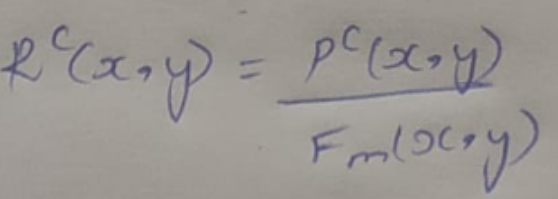 R^c(x,y) = P^c(x,y) / F_m(x,y)